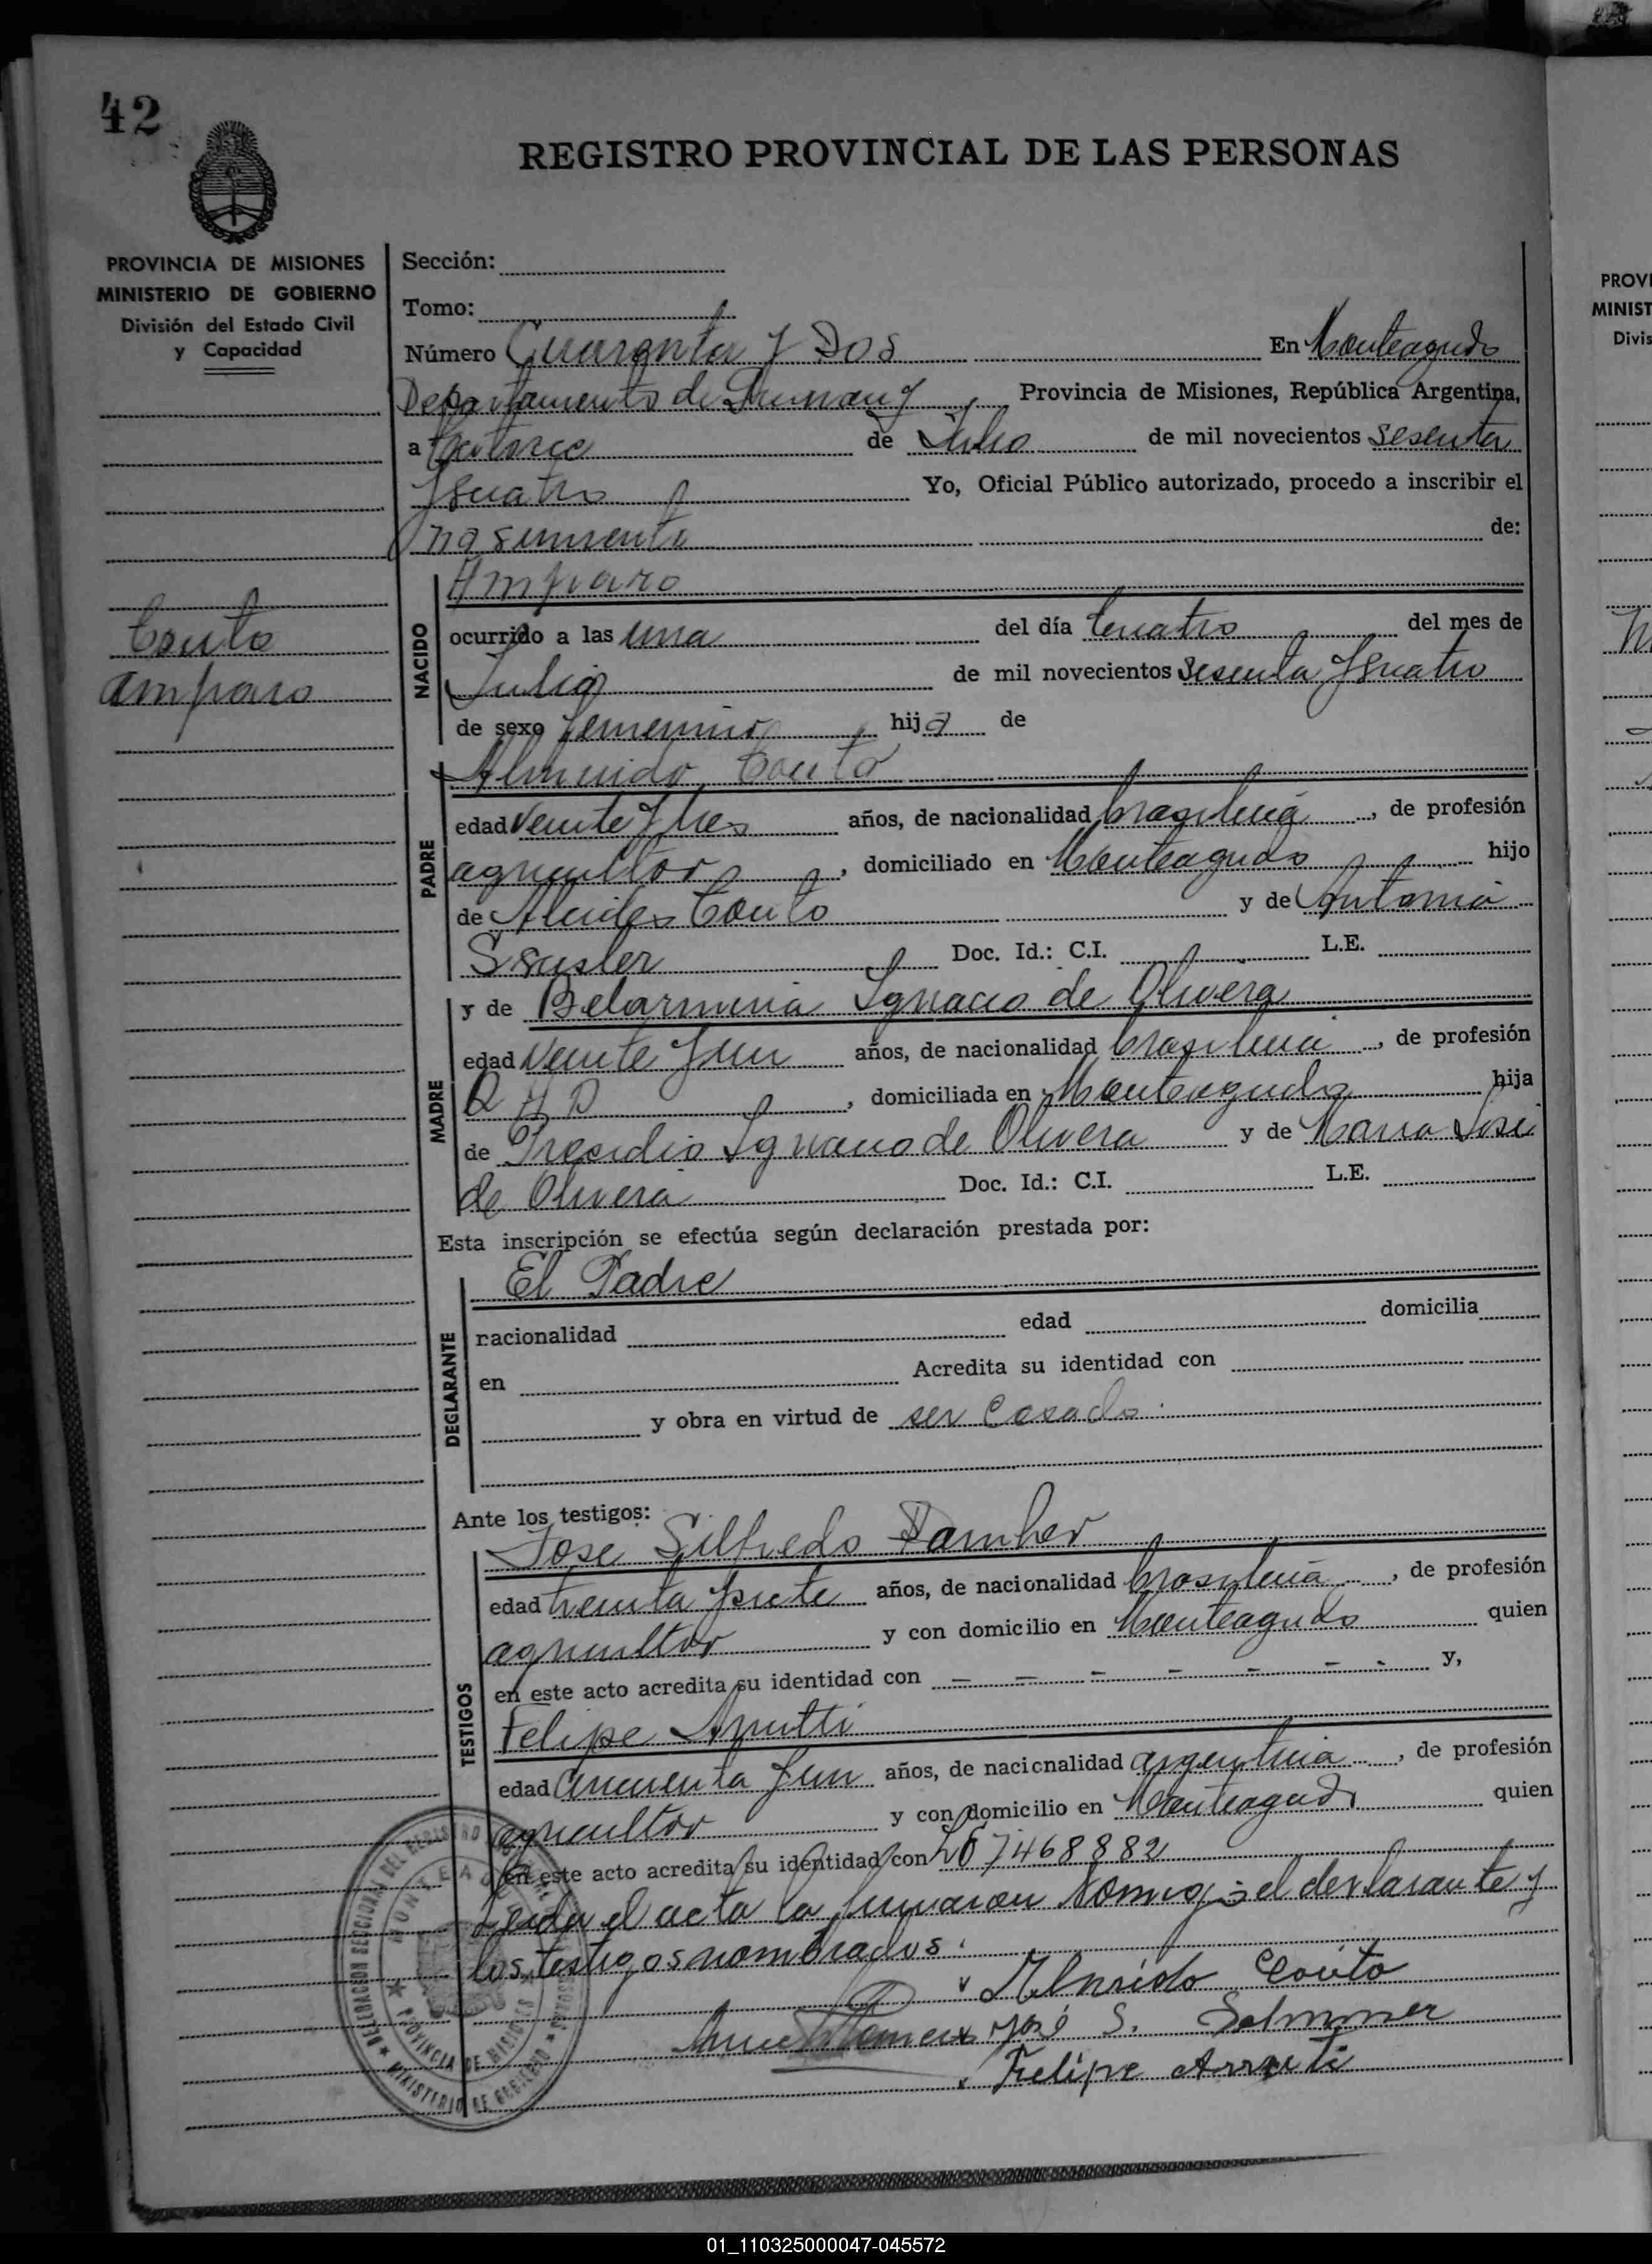 42
REGISTRO PROVINCIAL DE LAS PERSONAS
PROVINCIA DE MISIONES
MINISTERIO DE GOBIERNO
División del Estado Civil
y Capacidad
Couto
Amparo
Sección:
Tomo:
Número Cuarenta y Dos En Monteagudo
Departamento de Provincia de Misiones, República Argentina,
a Catorce de Julio de mil novecientos sesenta
y cuatro Yo, Oficial Público autorizado, procedo a inscribir el
nasimiento de:
NACIDO
Amparo
ocurrido a las una del día Cuatro del mes de
Julio de mil novecientos sesenta y cuatro
de sexo femenino hija de
PADRE
Couto
edad veinte y tres años, de nacionalidad brasilena, de profesión
agricultor, domiciliado en Monteagudo hijo
de Alcides Couto y de Antonia
Doc. Id.: C.I. L.E.
MADRE
y de Belarmina Ignacio de Olivera
edad veinte y un años, de nacionalidad brasilena, de profesión
Q H D, domiciliada en Monteagudo hija
de Presidio Ignacio de Olivera y de Maria José
de Olivera Doc. Id.: C.I. L.E.
Esta inscripción se efectúa según declaración prestada por:
DECLARANTE
El Padre
nacionalidad edad domicilia
en Acredita su identidad con
y obra en virtud de ser Casado
Ante los testigos:
TESTIGOS
Jose Silfredo
edad treinta y siete años, de nacionalidad brasilena, de profesión
agricultor y con domicilio en Monteagudo quien
en este acto acredita su identidad con - - - - - - - y,
Felipe
edad cincuenta y un años, de nacionalidad argentina, de profesión
agricultor y con domicilio en Monteagudo quien
en este acto acredita su identidad con 7468882
Leida el acta la firmaron conmigo el declarante y
los testigos nombrados.
Couto
José S.
Felipe Arruti
DELEGACION SECCIONAL DEL REGISTRO
MONTEAGUDO
PROVINCIA DE MISIONES
MINISTERIO DE GOBIERNO
PROVI
MINIST
Divis
01_110325000047-045572